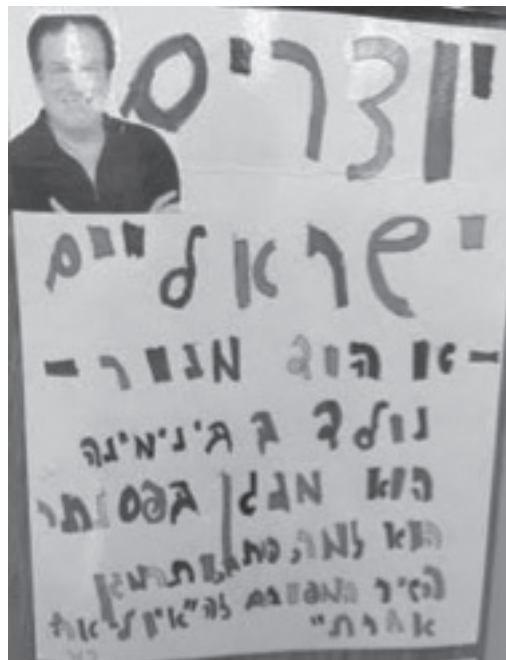 יוצרים
ישראליים
- אהוד מנור -
נולד ב בינימינה
הוא בפסנתר
הוא למד,
השיר המפורסם "אין לי ארץ
אחרת"